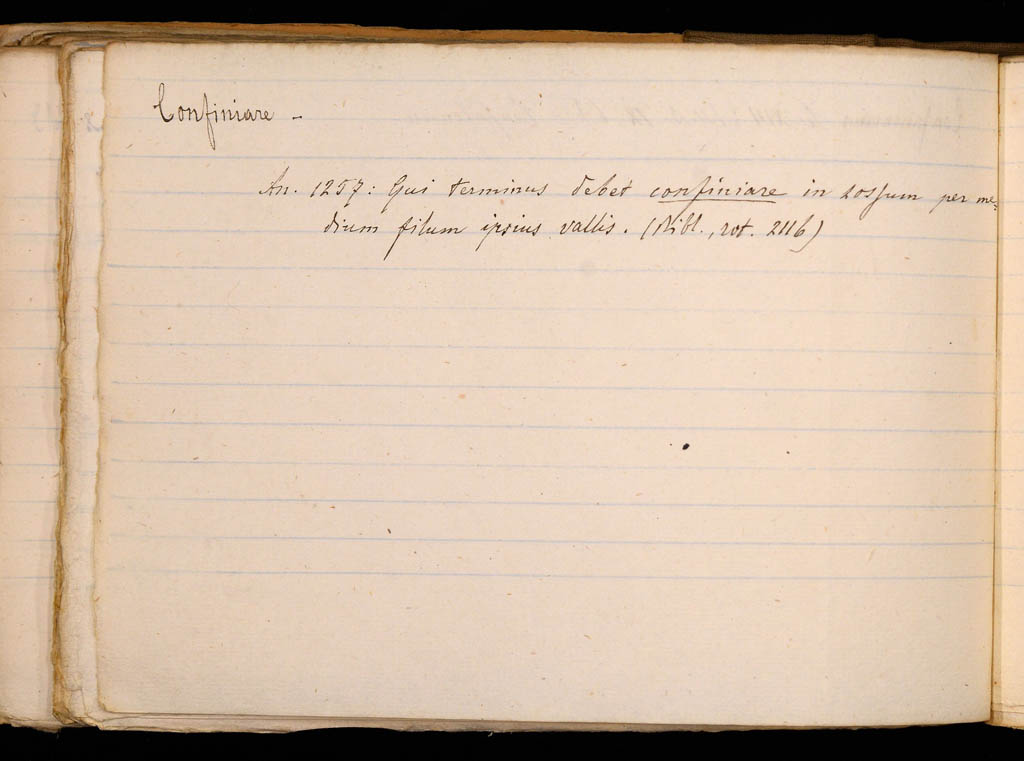 Confiniare -
An. 1257: Qui terminus debet confiniare in zossum per me-
dium filum ipsius vallis. (Bibl., rot. 2116)